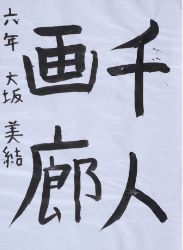 千人
画廊
六年 大坂 美結